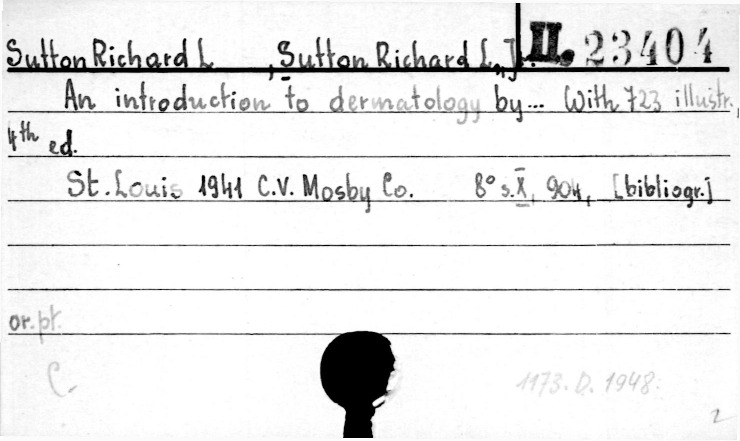 Sutton Richard L , Sutton Richard L., J. II. 23404
An introduction to dermatology by... With 723 illustr.,
4th ed.
St. Louis 1941 C.V. Mosby Co. 8° s. X, 904, [bibliogr.]
or. pt.
C. 1173. D. 1948.
2